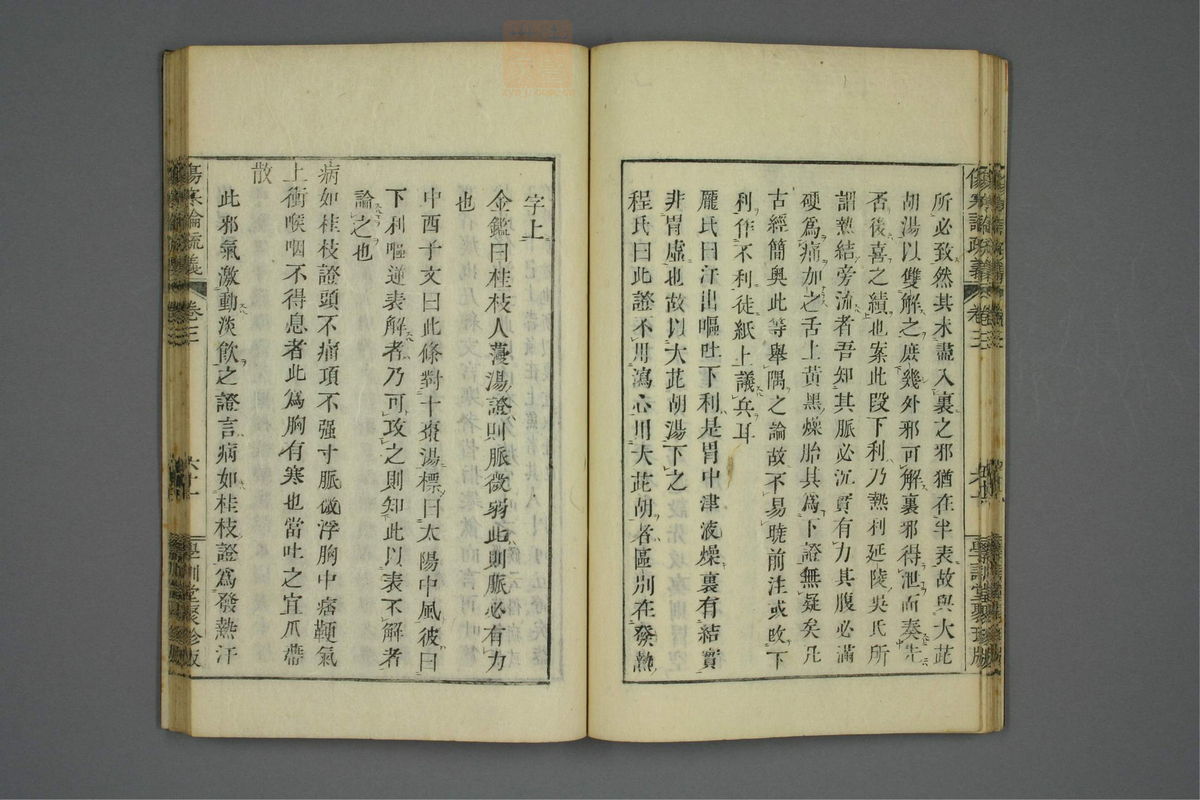 傷寒論疏義 卷三 學訓堂聚珍版
所必致然其未盡入裏之邪猶在半表故與大茈
胡湯以雙解之庶幾外邪可解裏邪得泄而奏先
否後喜之績也案此段下利乃熱利延陵吳氏所
謂熱結旁流者吾知其脈必沉實有力其腹必滿
硬爲痛加之舌上黃黑燥胎其爲下證無疑矣凡
古經簡奧此等舉隅之論故不易曉前注或改下
利作不利徒紙上議兵耳
龐氏曰汗出嘔吐下利是胃中津液燥裏有結實
非胃虛也故以大茈胡湯下之
程氏曰此證不用瀉心用大茈胡者區別在發熱
字上
金鑑曰桂枝人蓡湯證則脈微弱此則脈必有力
也
中西子文曰此條對十棗湯標曰太陽中風彼曰
下利嘔逆表解者乃可攻之則知此以表不解者
論之也
病如桂枝證頭不痛項不强寸脈微浮胸中痞鞕氣
上衝喉咽不得息者此爲胸有寒也當吐之宜瓜蔕
散
此邪氣激動淡飲之證言病如桂枝證爲發熱汗
傷寒論疏義 卷三 六十一 學訓堂聚珍版